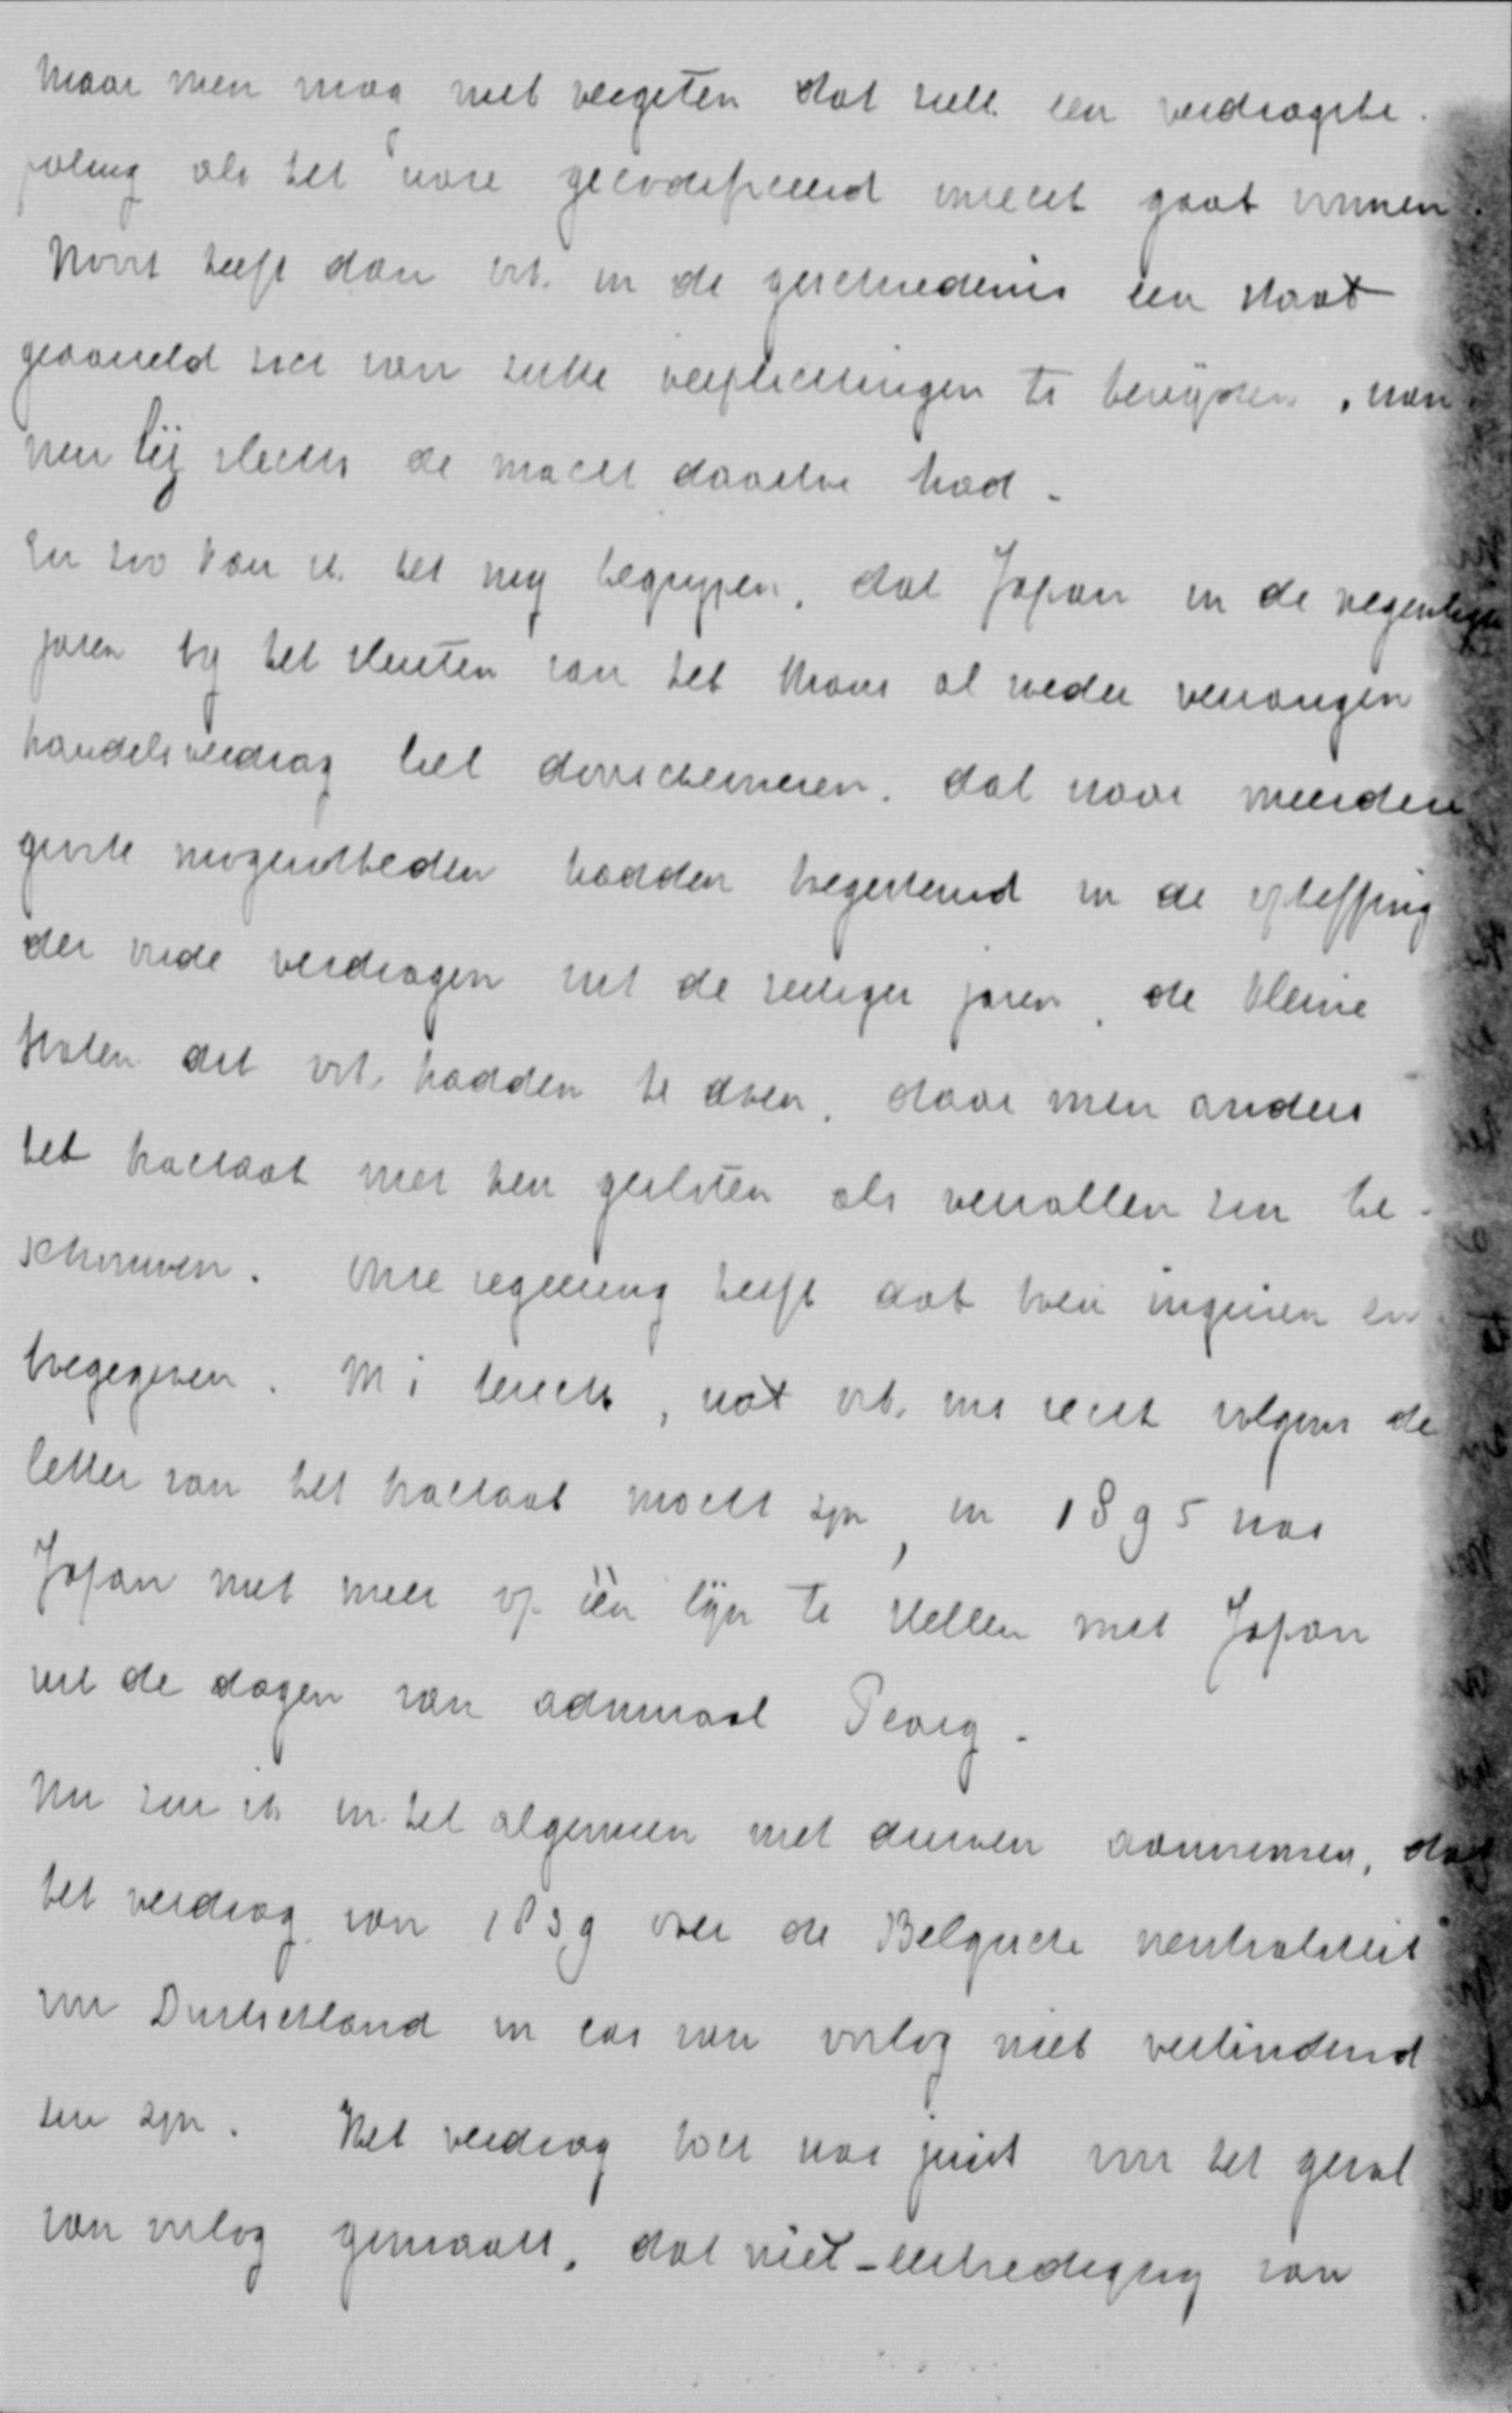 Maar men mag niet vergeten dat zulk een verdragsbe-
paling als het ware gecodificeerd onrecht gaat vormen.
Nooit heeft dan ook in de geschiedenis een staat
geaarzeld zich van zulke verplichtingen te bevrijden, wan-
neer hij slechts de macht daartoe had.
En zoo kan ik het mij begrijpen, dat Japan in de negentiger
jaren bij het sluiten van het thans al weder vervangen
handelsverdrag liet doorschemeren, dat waar meerdere
groote mogendheden hadden toegestemd in de opheffing
der oude verdragen uit de zestiger jaren, de kleine
staten dit ook hadden te doen, daar men anders
het tractaat met hen gesloten als vervallen zou be-
schouwen. Onze regeering heeft dat toen ingezien en
toegegeven. M i terecht, wat ook ons recht volgens de
letter van het tractaat mocht zijn, in 1895 was
Japan niet meer op één lijn te stellen met Japan
uit de dagen van admiraal Pearg.
Nu zou ik in het algemeen niet durven aannemen, dat
het verdrag van 1839 over de Belgische neutraliteit
voor Duitschland in cas van oorlog niet verbindend
zou zijn. Het verdrag toch was juist voor het geval
van oorlog gemaakt, dat niet-eerbiediging van